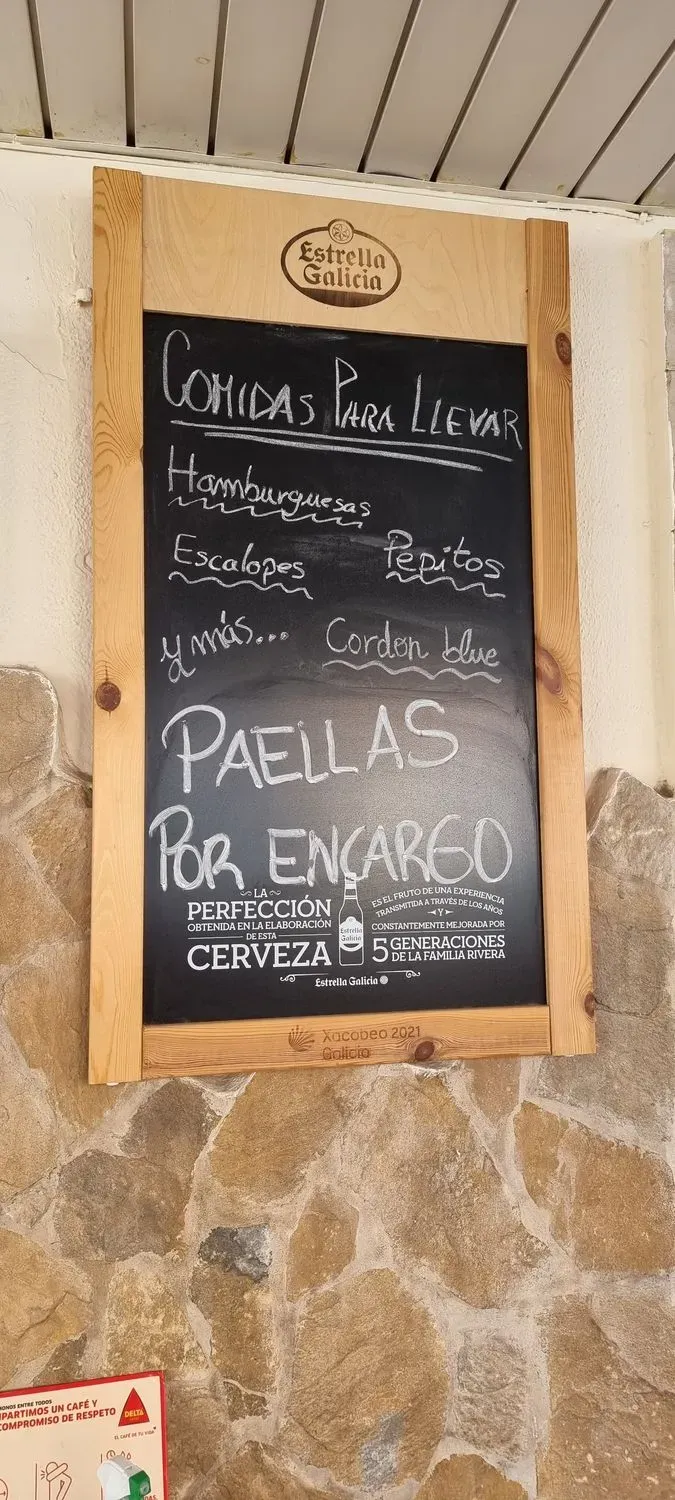 Estrella
Galicia
COMIDAS PARA LLEVAR
Hamburguesas
Escalopes Pepitos
y más... Cordon blue
PAELLAS
POR ENCARGO
LA
PERFECCIÓN
OBTENIDA EN LA ELABORACIÓN
DE ESTA
CERVEZA
Estrella
Galicia
ES EL FRUTO DE UNA EXPERIENCIA
TRANSMITIDA A TRAVÉS DE LOS AÑOS
Y
CONSTANTEMENTE MEJORADA POR
5 GENERACIONES
DE LA FAMILIA RIVERA
Estrella Galicia
Xacobeo 2021
Galicia
ONOS ENTRE TODOS
PARTIMOS UN CAFÉ Y
COMPROMISO DE RESPETO
DELTA
EL CAFÉ DE TU VIDA